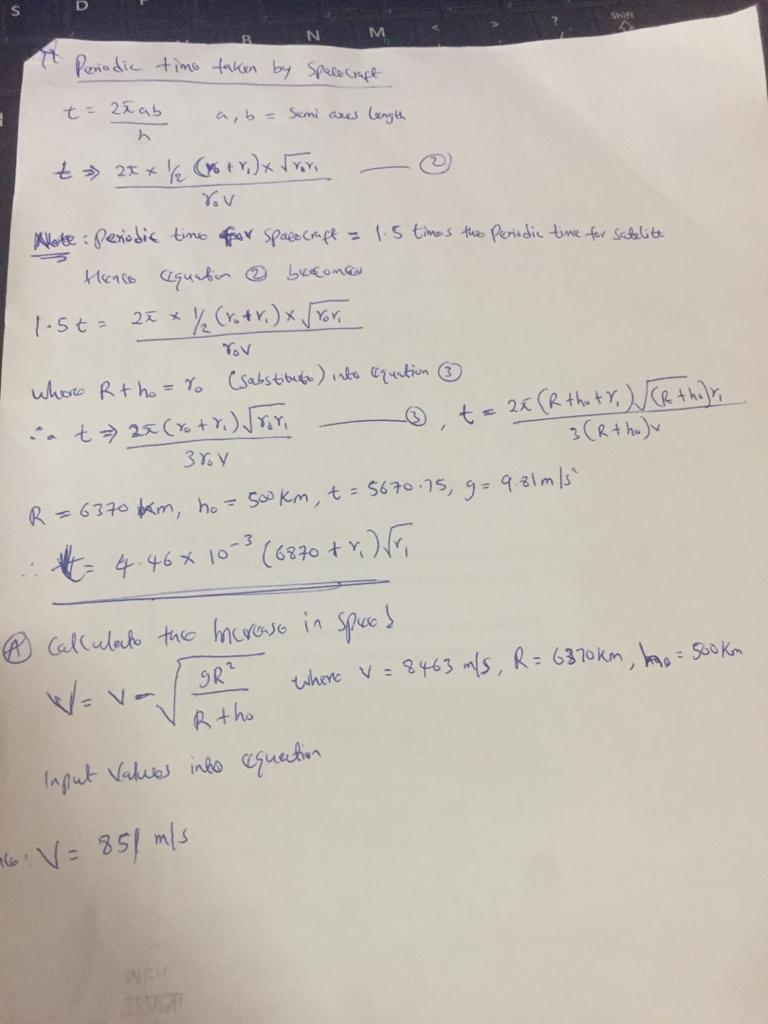 S D B N M < > ? Shift
Periodic time taken by Spacecraft
t = 2πab / h a, b = Semi axes length
t ⇒ 2π × 1/2 (r₀ + r₁) × √r₀r₁ / r₀v —— ②
Note: Periodic time for Spacecraft = 1.5 times the Periodic time for satelite
Hence equation ② becomes
1.5t = 2π × 1/2 (r₀ + r₁) × √r₀r₁ / r₀v
where R + h₀ = r₀ (Substitute) into equation ③
∴ t ⇒ 2π(r₀ + r₁)√r₀r₁ / 3r₀v —— ③, t = 2π(R + h₀ + r₁)√(R + h₀)r₁ / 3(R + h₀)v
R = 6370 km, h₀ = 500 Km, t = 5670.75, g = 9.81 m/s²
∴ t = 4.46 × 10⁻³ (6870 + r₁)√r₁
Ⓐ Calculate the Increase in Speed
V = v - √gR² / R + h₀ where v = 8463 m/s, R = 6370 km, h₀ = 500 Km
Input Values into equation
V = 851 m/s